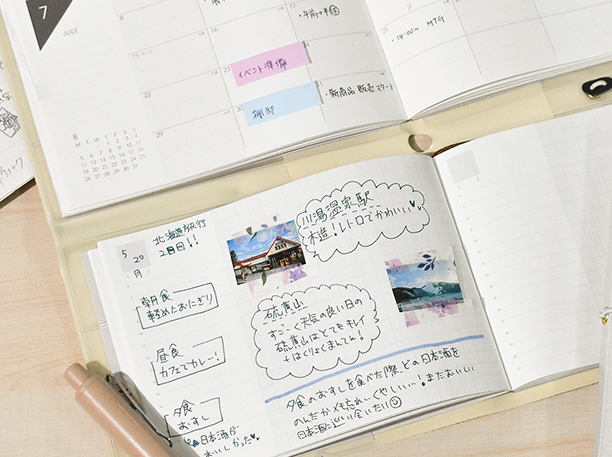 7
JULY
MTG
イベント準備
棚卸
・新商品 販売スタート
15
22
29
8
5
20
月
北海道旅行
2日目!!
朝食
軽めにおにぎり
昼食
カフェでカレー!
夕食
おすし
日本酒が
おいしかった♥
川湯温泉駅
木造!レトロでかわいい♥
硫黄山
すご〜く天気の良い日の
硫黄山はとてもキレイ
+はくりょくまんてん!
夕食のおすしを食べた際、どの日本酒を
のんだかメモ忘れ…くやしい…!またおいしい
日本酒に出会いたい☺